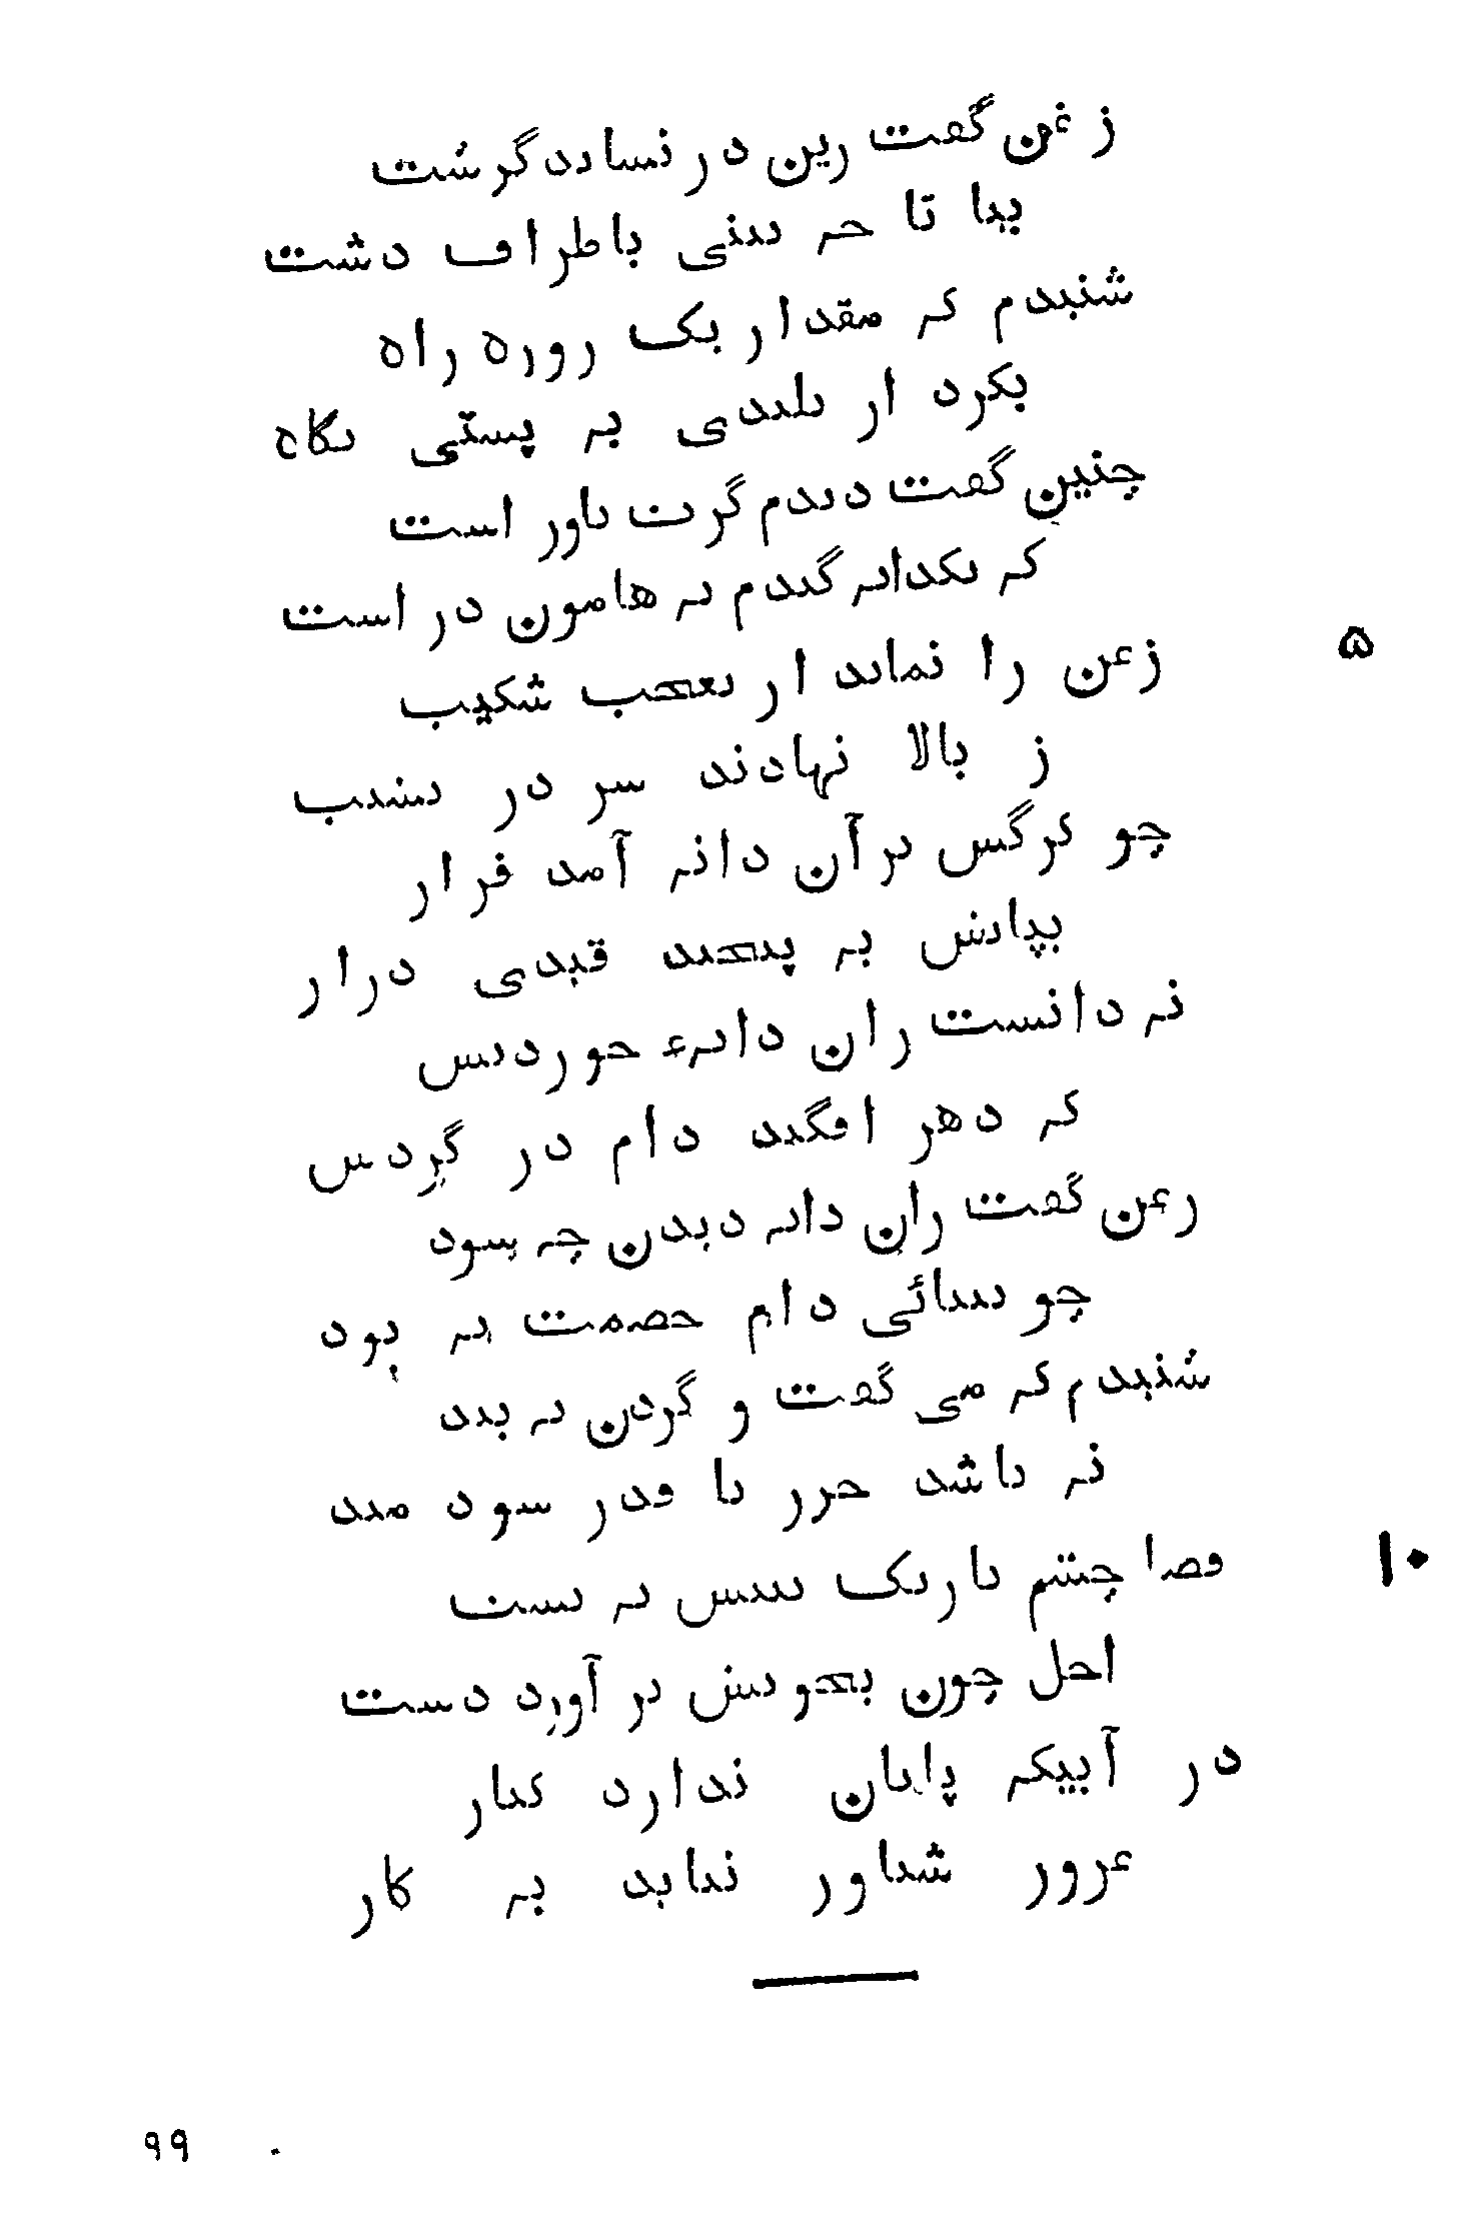 زغن گفت زین در نشاید گزشت
بیا تا چه بینی باطراف دشت
شنیدم که مقدار یک روزه راه
بکرد از بلندی به پستی نگاه
چنین گفت دیدم گرت باور است
که یکدانه گندم به هامون در است
۵
زغن را نماند از تعجب شکیب
ز بالا نهادند سر در نشیب
چو کرگس بر آن دانه آمد فراز
بپایش به پیچید قیدی دراز
نه دانست زان دانهٔ خوردنش
که دهر افگند دام در گردنش
زغن گفت زان دانه دیدن چه سود
چو بینائی دام خصمت نه بود
شنیدم که می گفت و گردن به بند
نه باشد حرر با قدر سود مند
۱۰
قضا چشم باریک بینش به بست
اجل چون بخونش بر آورد دست
در آبیکه پایان ندارد کنار
غرور شناور نیاید به کار
۹۹